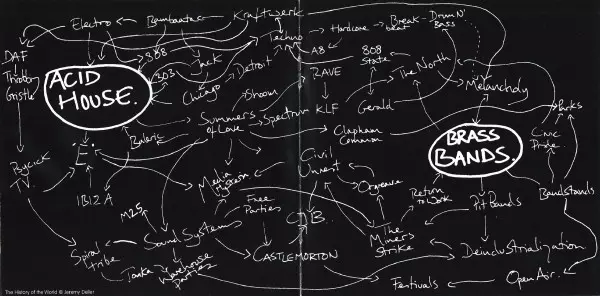 Electro
Bambaataa
Kraftwerk
Techno
Hardcore
Break-
beat
Drum N'
Bass
DAF
Throbbing
Gristle
808
303
Jack
Detroit
Chicago
A8
RAVE
808
State
The North
Melancholy
ACID
HOUSE.
Shoom
Summers
of Love
Spectrum
KLF
Gerald
Parks
Balearic
Clapham
Common
BRASS
BANDS.
Civic
Pride
"E"
Psychick
TV
Media
Hysteria
Civil
Unrest
Orgreave
IBIZA
M25
Free
Parties
CJB.
Return
to Work
Pit Bands
Bandstands
Spiral
Tribe
Sound Systems
CASTLEMORTON
The
Miners
Strike
Deindustrialization
Tonka
Warehouse
Parties
Festivals
Open Air.
The History of the World © Jeremy Deller